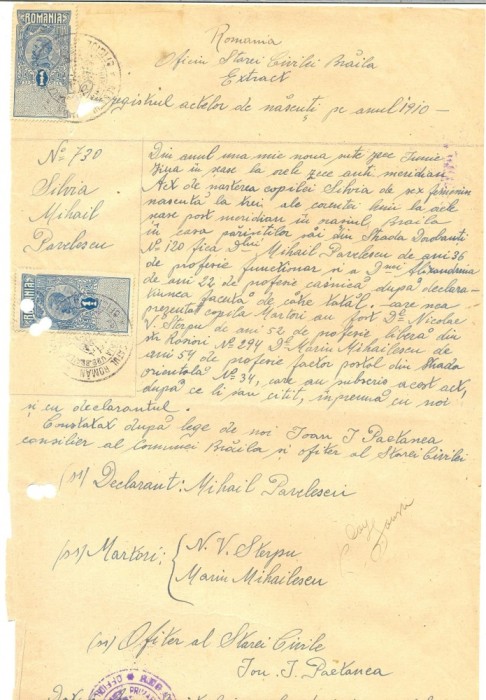 ROMANIA
1
Romania
Oficiu Starei Civilei Brăila
Extract
registrul actelor de născuți pe anul 1910 —
No 730
Silvia
Mihail
Pavelescu
ROMANIA
1
Din anul una mie nouă sute zece Iunie
ziua în șase la orele zece anti meridian
Act de nasterea copilei Silvia de sex feminin
născută la trei ale corentei luni la orele
șase post meridian în orașul Braila
în casa părinților săi din Strada Dorobanți
No 120 fica Dlui Mihail Pavelescu de ani 36
de profesie functionar și a Dnei Alexandrina
de ani 22 de profesie casnică după declara-
tiunea făcută de către tatăl care ne a
prezentat copila Martori au fost De Nicolae
V. Sterpu de ani 52 de profesie liberă din
str Roșiori No 294 De Marin Mihailescu de
ani 54 de profesie factor postal din strada
orientală No 34, care au subscris acest act,
după ce li s'au citit, împreună cu noi
și cu declarantul.
Constatat după lege de noi Ioan I Paetanea
consilier al Comunei Brăila și ofițer al Starei Civilei
(ss) Declarant: Mihail Pavelescu
(ss) Martori: N. V. Sterpu
Marin Mihailescu
(ss) Ofiter al Starei Civile
Ion. I. Paetanea